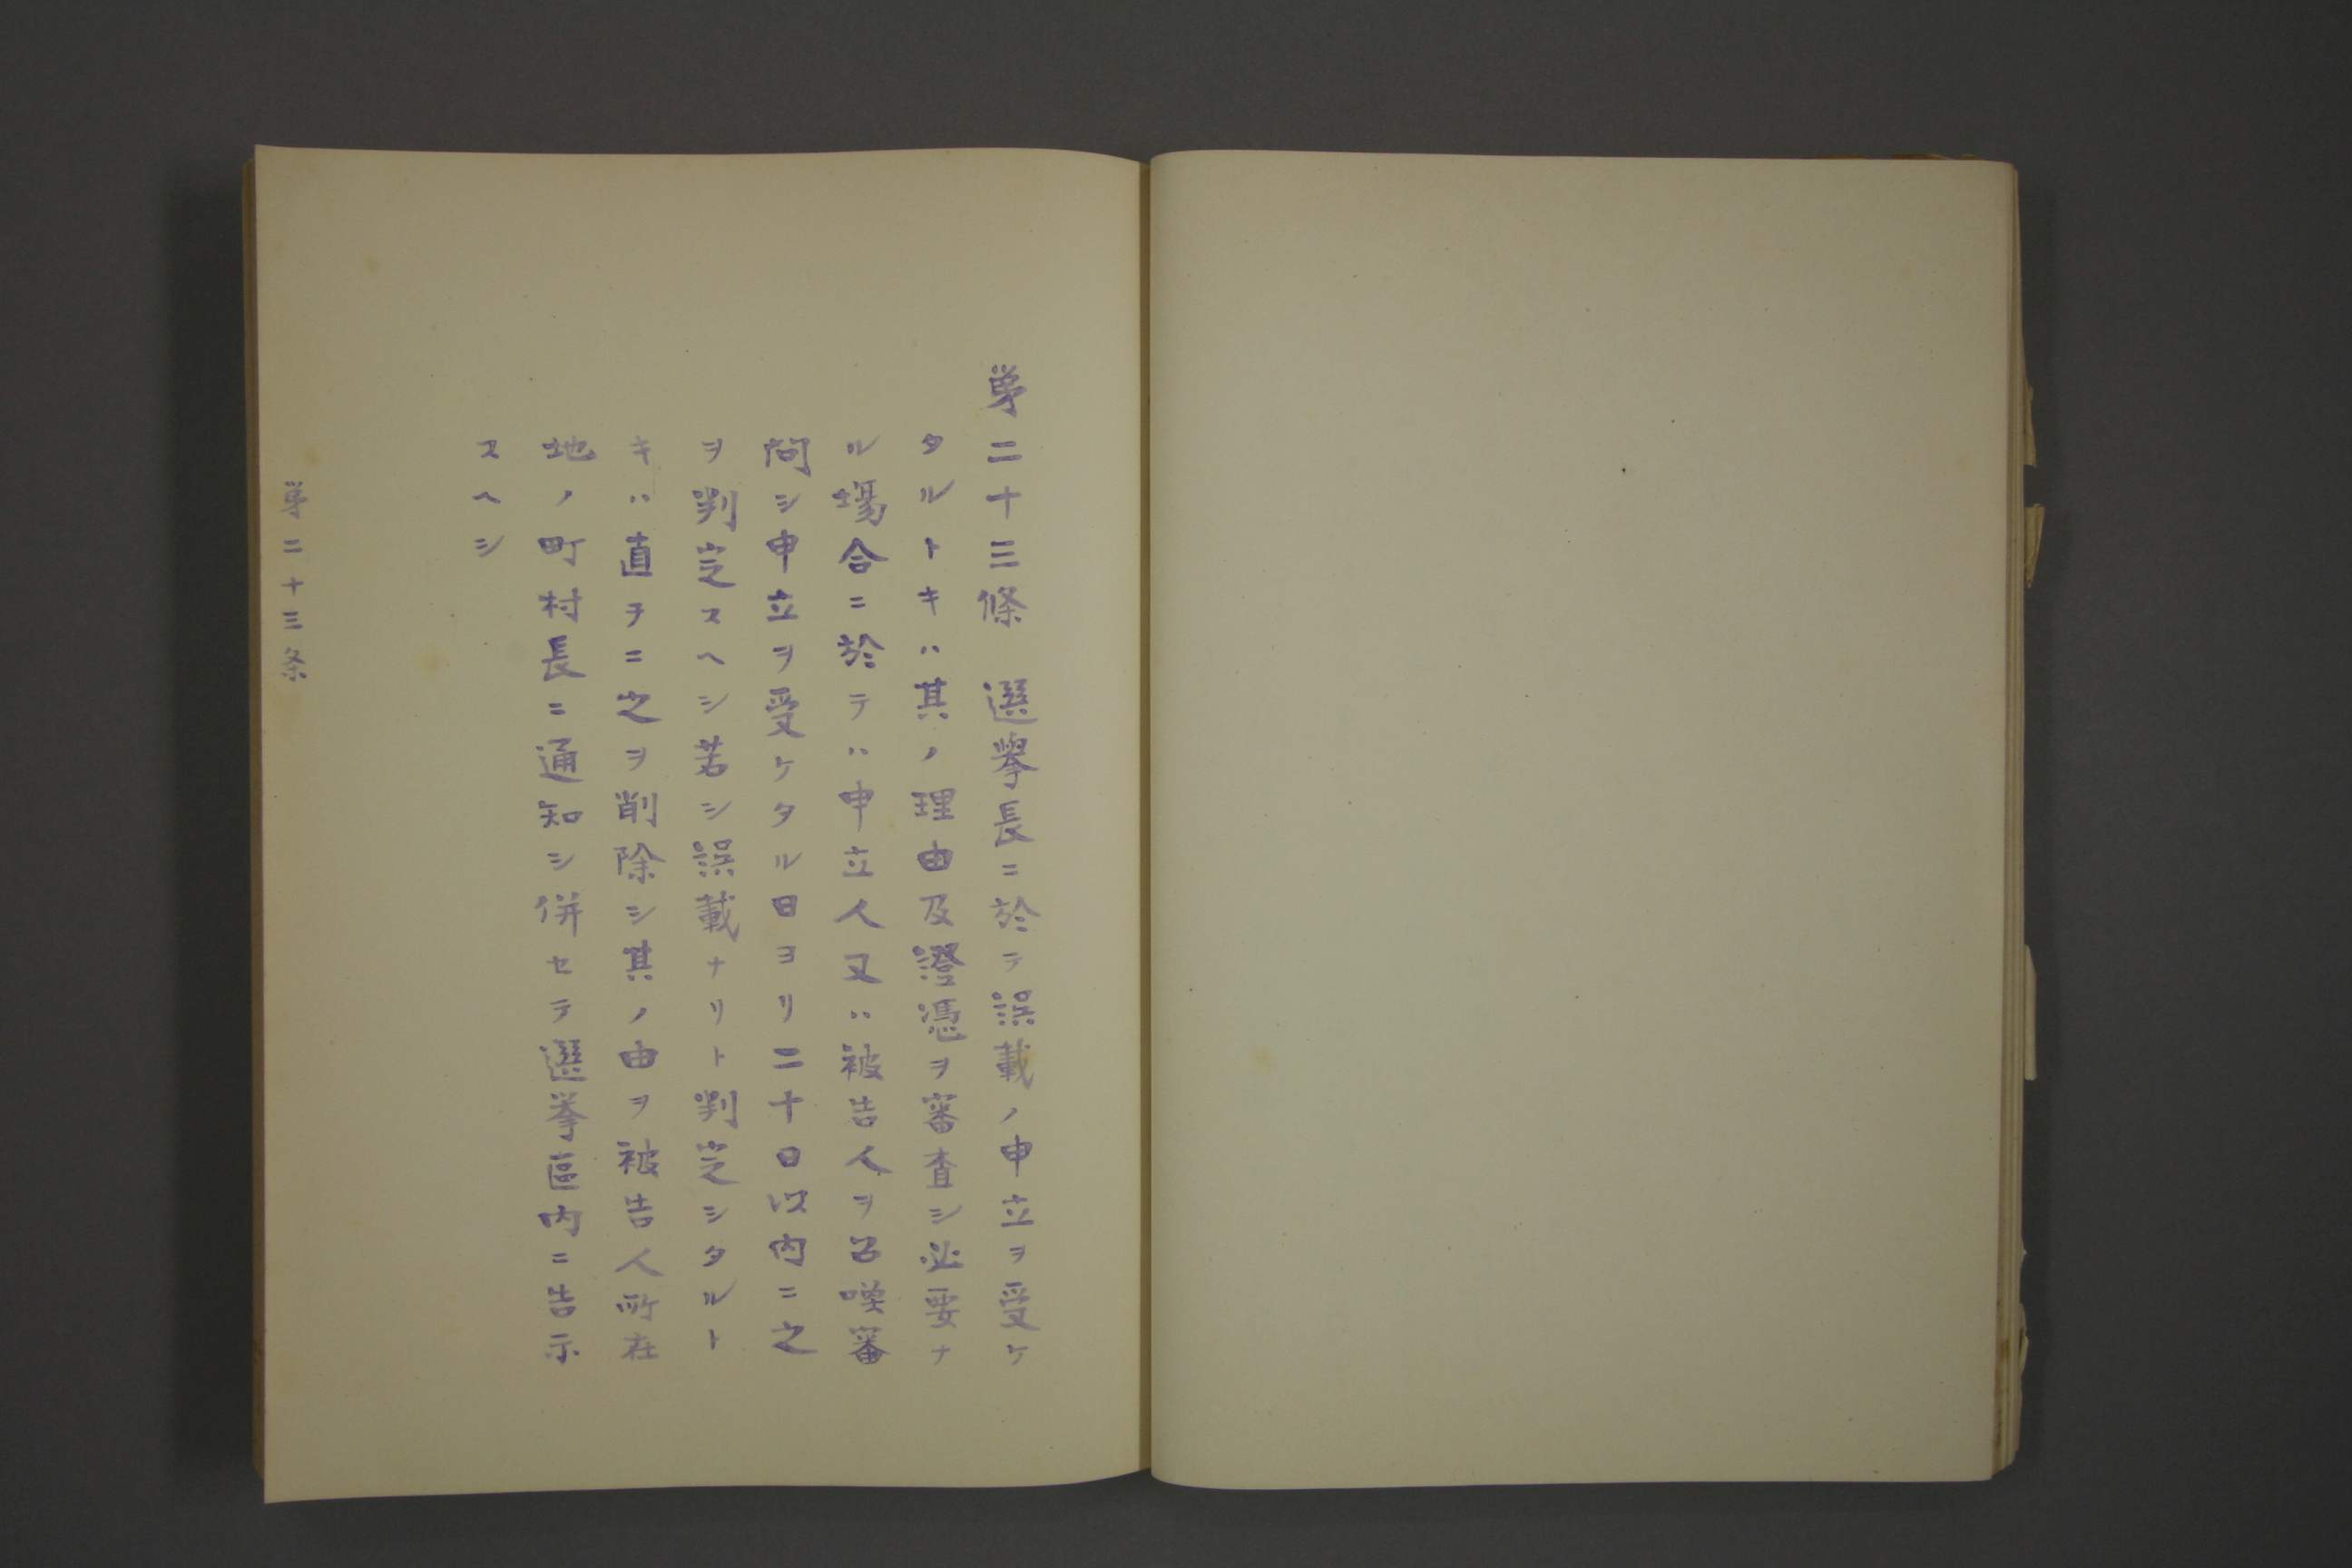 第二十三條　選擧長ニ於テ誤載ノ申立ヲ受ケ
タルトキハ其ノ理由及證憑ヲ審査シ必要ナ
ル場合ニ於テハ申立人又ハ被告人ヲ召喚審
問シ申立ヲ受ケタル日ヨリ二十日以内ニ之
ヲ判定スヘシ若シ誤載ナリト判定シタルト
キハ直チニ之ヲ削除シ其ノ由ヲ被告人所在
地ノ町村長ニ通知シ併セテ選挙區内ニ告示
スヘシ
第二十三条